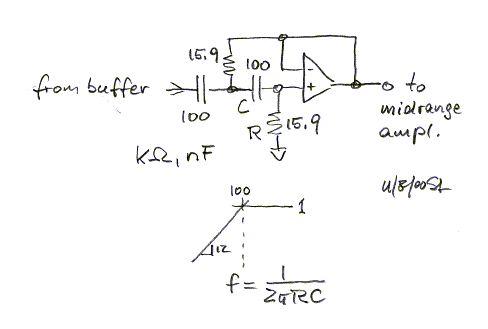 15.9
100
from buffer
100
C
R
15.9
-
+
to
midrange
ampl.
kΩ, nF
100
1
12
f = 1/2πRC